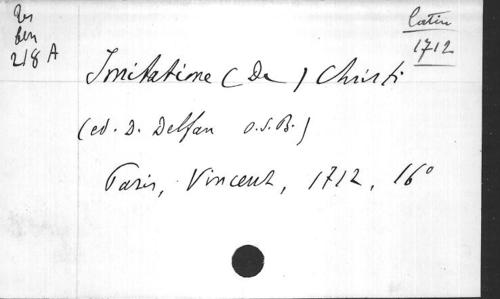 Res
Ben
218 A
Latin
1712
Imitatione (De) Christi
(ed. D. Delfau O.S.B.)
Paris, Vincent, 1712, 16°